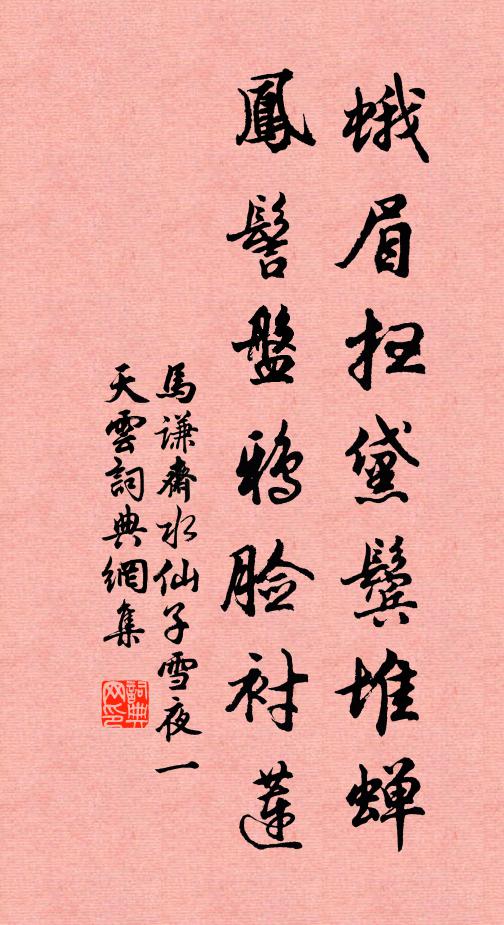 蛾眉扫黛鬓堆蝉
鳳髻盤鸦脸衬蓮
馬谦齋水仙子雪夜一
天雲詞典網集
詞典网印